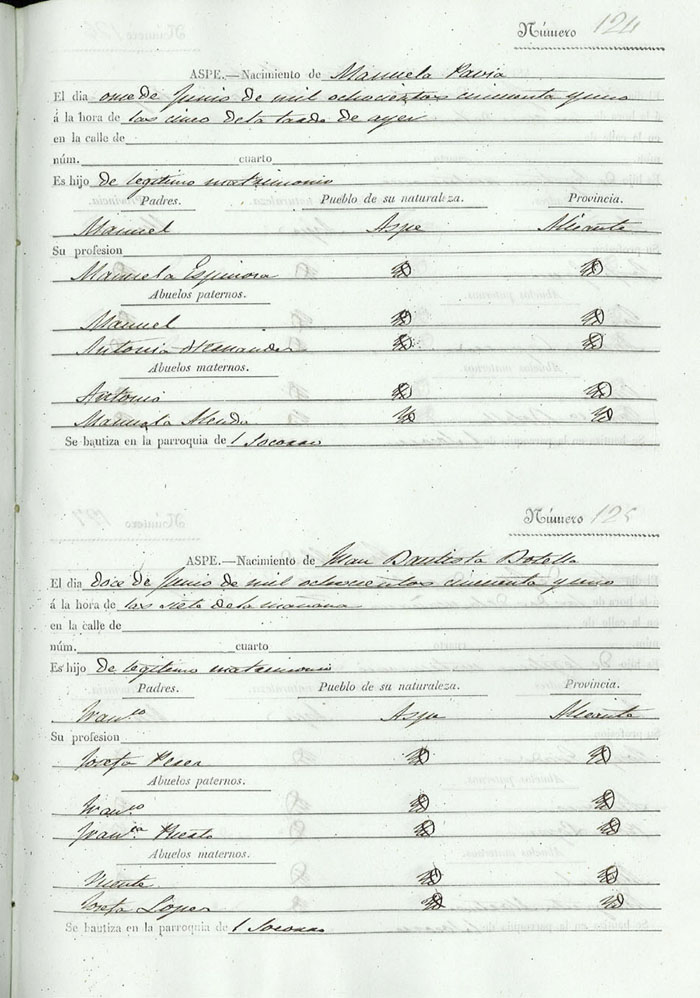 Número 124
ASPE.—Nacimiento de Manuela Pavia
El dia once de Junio de mil ochocientos cincuenta y uno
á la hora de las cinco de la tarde de ayer
en la calle de
núm. cuarto
Es hijo de legitimo matrimonio
Padres. Pueblo de su naturaleza. Provincia.
Manuel Aspe Alicante
Su profesion
Manuela Espinosa
Abuelos paternos.
Manuel
Antonia Hernandez
Abuelos maternos.
Antonio
Manuela Alenda
Se bautiza en la parroquia de l Socorro
Número 125
ASPE.—Nacimiento de Juan Bautista Botella
El dia doce de Junio de mil ochocientos cincuenta y uno
á la hora de las siete de la mañana
en la calle de
núm. cuarto
Es hijo de legitimo matrimonio
Padres. Pueblo de su naturaleza. Provincia.
Fran.co Aspe Alicante
Su profesion
Josefa Perez
Abuelos paternos.
Fran.co
Fran.ca
Abuelos maternos.
Vicente
Josefa Lopez
Se bautiza en la parroquia de l Socorro